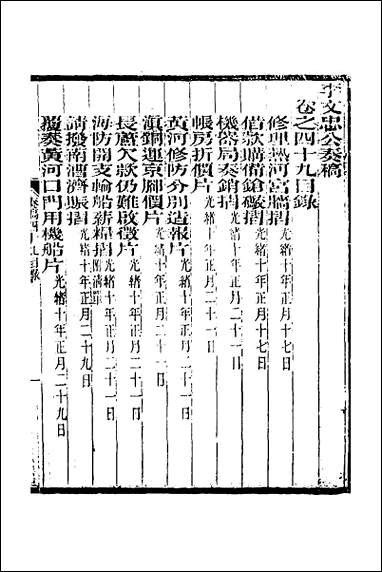 李文忠公奏稿
卷之四十九目錄
修理熱河宮牆摺 光緒十年正月十七日
借款購備鎗礮摺 光緒十年正月十七日
機器局奏銷摺 光緒十年正月二十一日
帳房折價片 光緒十年正月二十一日
黃河修防分別造報片 光緒十年正月二十一日
滇銅運京腳價片 光緒十年正月二十一日
長蘆欠款仍難啟徵片 光緒十年正月二十一日
海防開支輪船薪糧摺 附清單 光緒十年正月二十一日
請撥南漕濟賑摺 光緒十年正月二十九日
覆奏黃河口門用機船片 光緒十年正月二十九日
奏稿四十九目錄
一